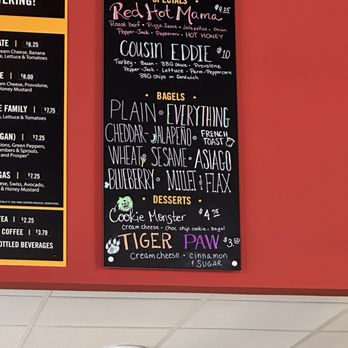 SPECIALS
Red Hot Mama $9.25
Roast beef • Pizza Sauce • Jalapeños • Onion
Pepper-Jack • Pepperoni • HOT HONEY
COUSIN EDDIE $10
Turkey • Bacon • BBQ sauce • Provolone
Pepper-Jack • Lettuce • Parm-Peppercorn
BBQ chips on Sandwich
• BAGELS •
PLAIN • EVERYTHING
CHEDDAR-JALAPEÑO • FRENCH TOAST
WHEAT • SESAME • ASIAGO
BLUEBERRY • MILLET & FLAX
• DESSERTS
Cookie Monster $4.25
Cream cheese • choc chip cookie • Bagel
TIGER PAW $3.50
Cream cheese • cinnamon
& SUGAR
ATE | $8.25
Cream Cheese, Banana
Lettuce & Tomatoes
| $8.00
Cream Cheese, Provolone,
Honey Mustard
E FAMILY | $7.75
GAN) | $7.25
Onions, Green Peppers,
Cucumbers & Sprouts
and Prosper"
GAS | $7.25
Cheese, Swiss, Avocado,
& Honey Mustard
TEA | $2.25
COFFEE | $3.79
BOTTLED BEVERAGES